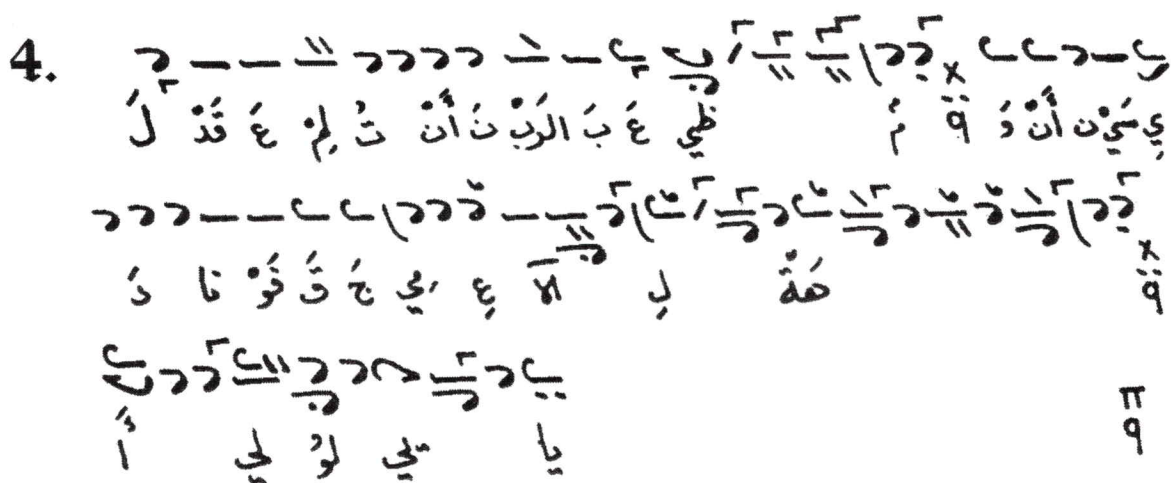 4. لَ قَدْ عَ لِمْ تُ أَنْ نَ الرَبْ بَ عَ ظي مُ ق وَ أَنْ نَ سَيْ يِ
دَ نا فَوْ قَ جَ مي عِ الآ لِ هَةْ ق
أَ لي لُو ئي يا π q